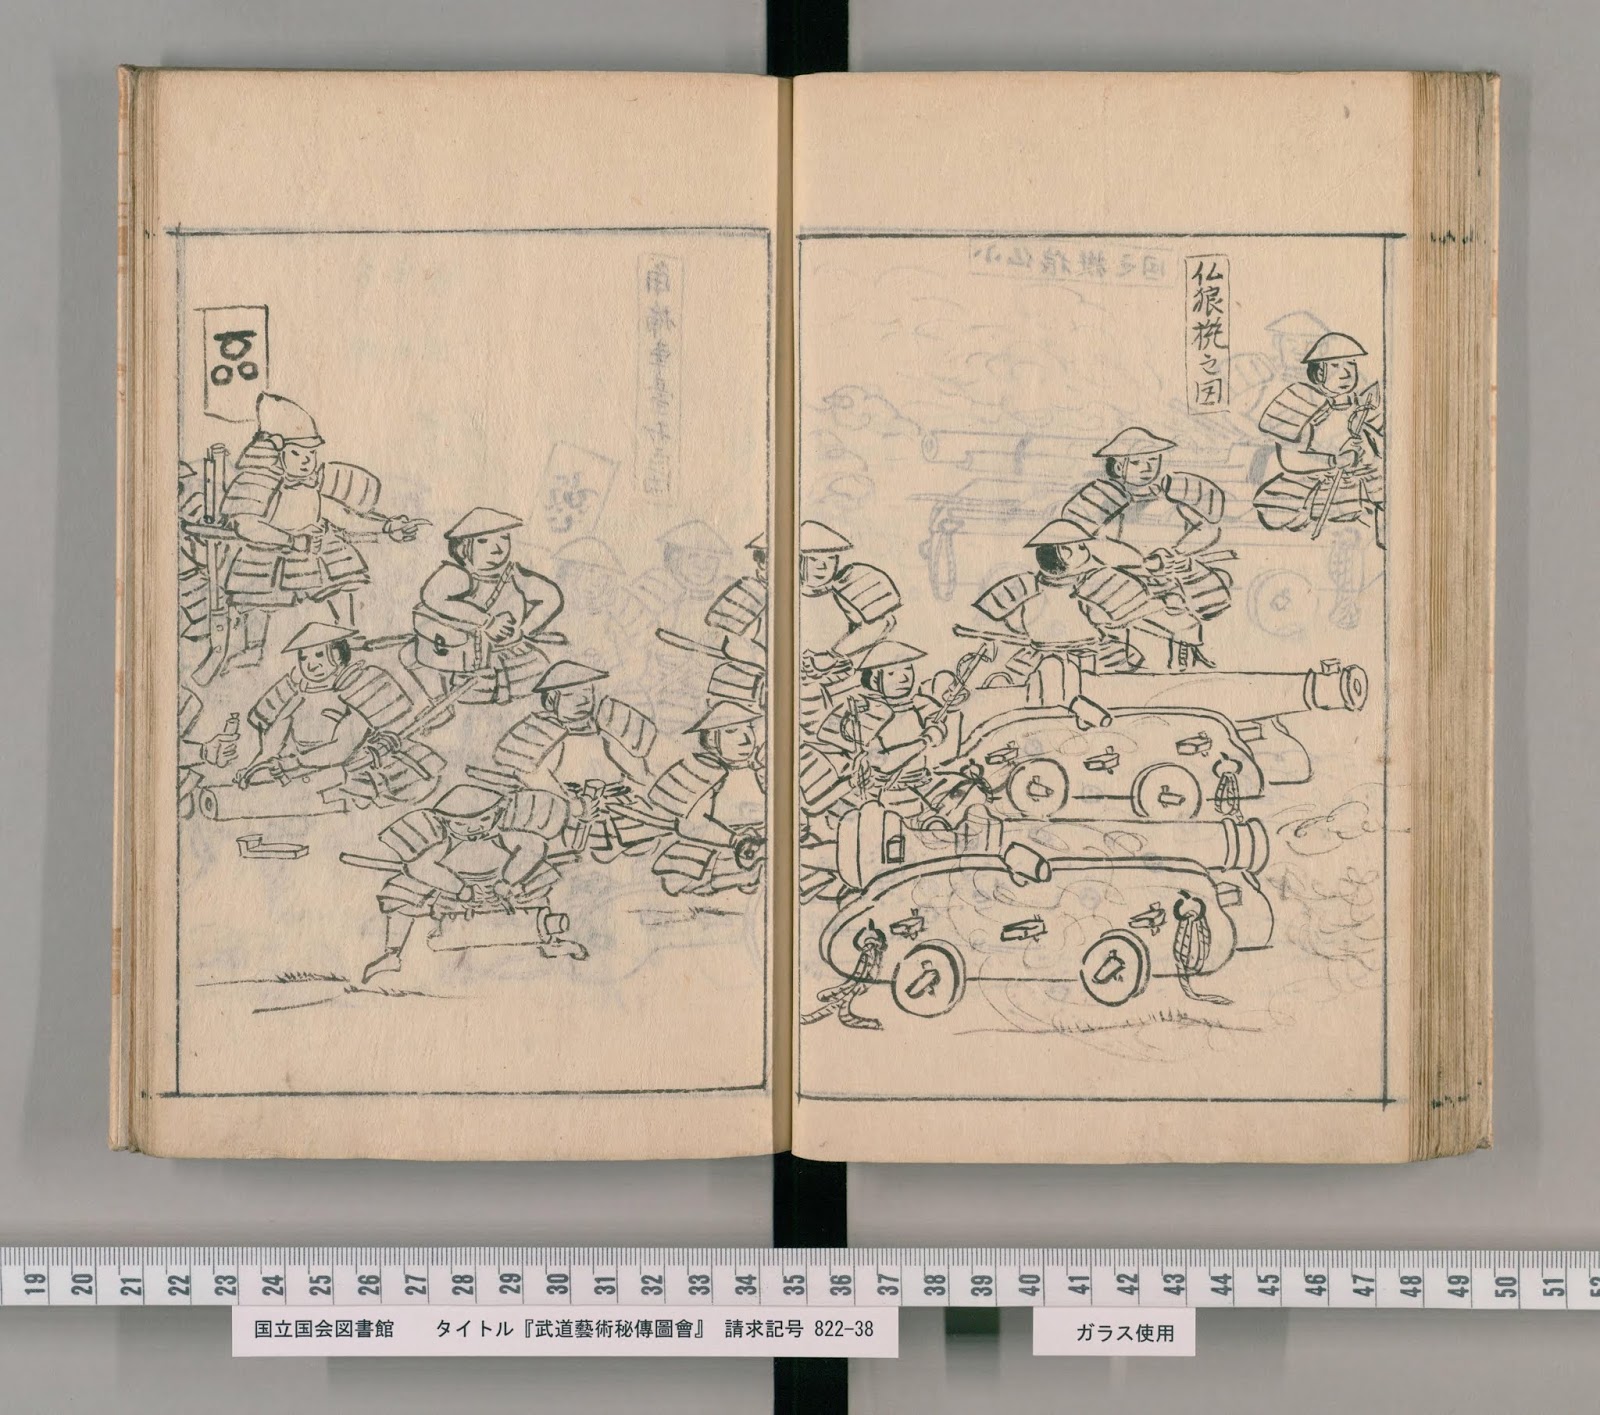 仏狼機之図
19 20 21 22 23 24 25 26 27 28 29 30 31 32 33 34 35 36 37 38 39 40 41 42 43 44 45 46 47 48 49 50 51 52
国立国会図書館 タイトル『武道藝術秘傳圖會』 請求記号 822-38
ガラス使用